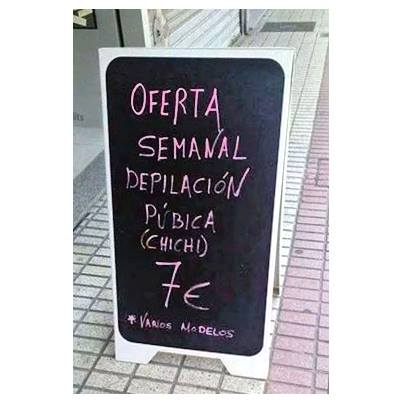 OFERTA
SEMANAL
DEPILACIÓN
PÚBICA
(CHICHI)
7€
* VARIOS MODELOS